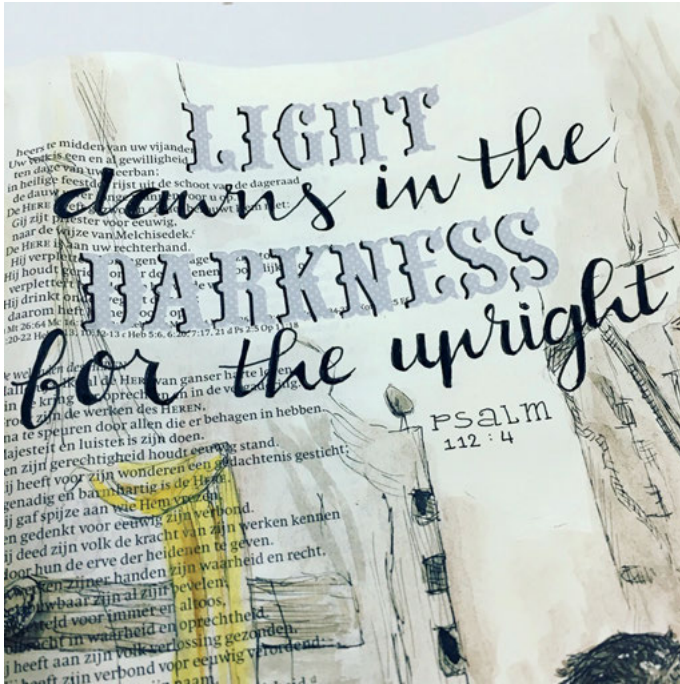 LIGHT
dawns in the
DARKNESS
for the upright
PSALM
112:4
heers te midden van uw vijanden
Uw volk is een en al gewilligheid
ten dage van uw heerban;
in heilige feestdo rijst uit de schoot van de dageraad
de dauw
De HERE
Gij zijt priester voor eeuwig,
naar de wijze van Melchisedek.
De HERE is aan uw rechterhand.
Hij verplet
Hij houdt geric
verpletter
Hij drinkt ond
daarom heft
van ganser harte
in de kring oprechten en in de vergadering.
zijn de werken des HEREN,
na te speuren door allen die er behagen in hebben.
majesteit en luister is zijn doen.
en zijn gerechtigheid houdt eeuwig stand.
ij heeft voor zijn wonderen een gedachtenis gesticht;
genadig en barmhartig is de HERE.
ij gaf spijze aan wie Hem vrezen.
n gedenkt voor eeuwig zijn verbond.
ij deed zijn volk de kracht van zijn werken kennen
door hun de erve der heidenen te geven.
zijner handen zijn waarheid en recht,
wbaar zijn al zijn bevelen,
voor immer en altoos,
in waarheid en oprechtheid.
j heeft aan zijn volk verlossing gezonden,
zijn verbond voor eeuwig verordend:
naam.